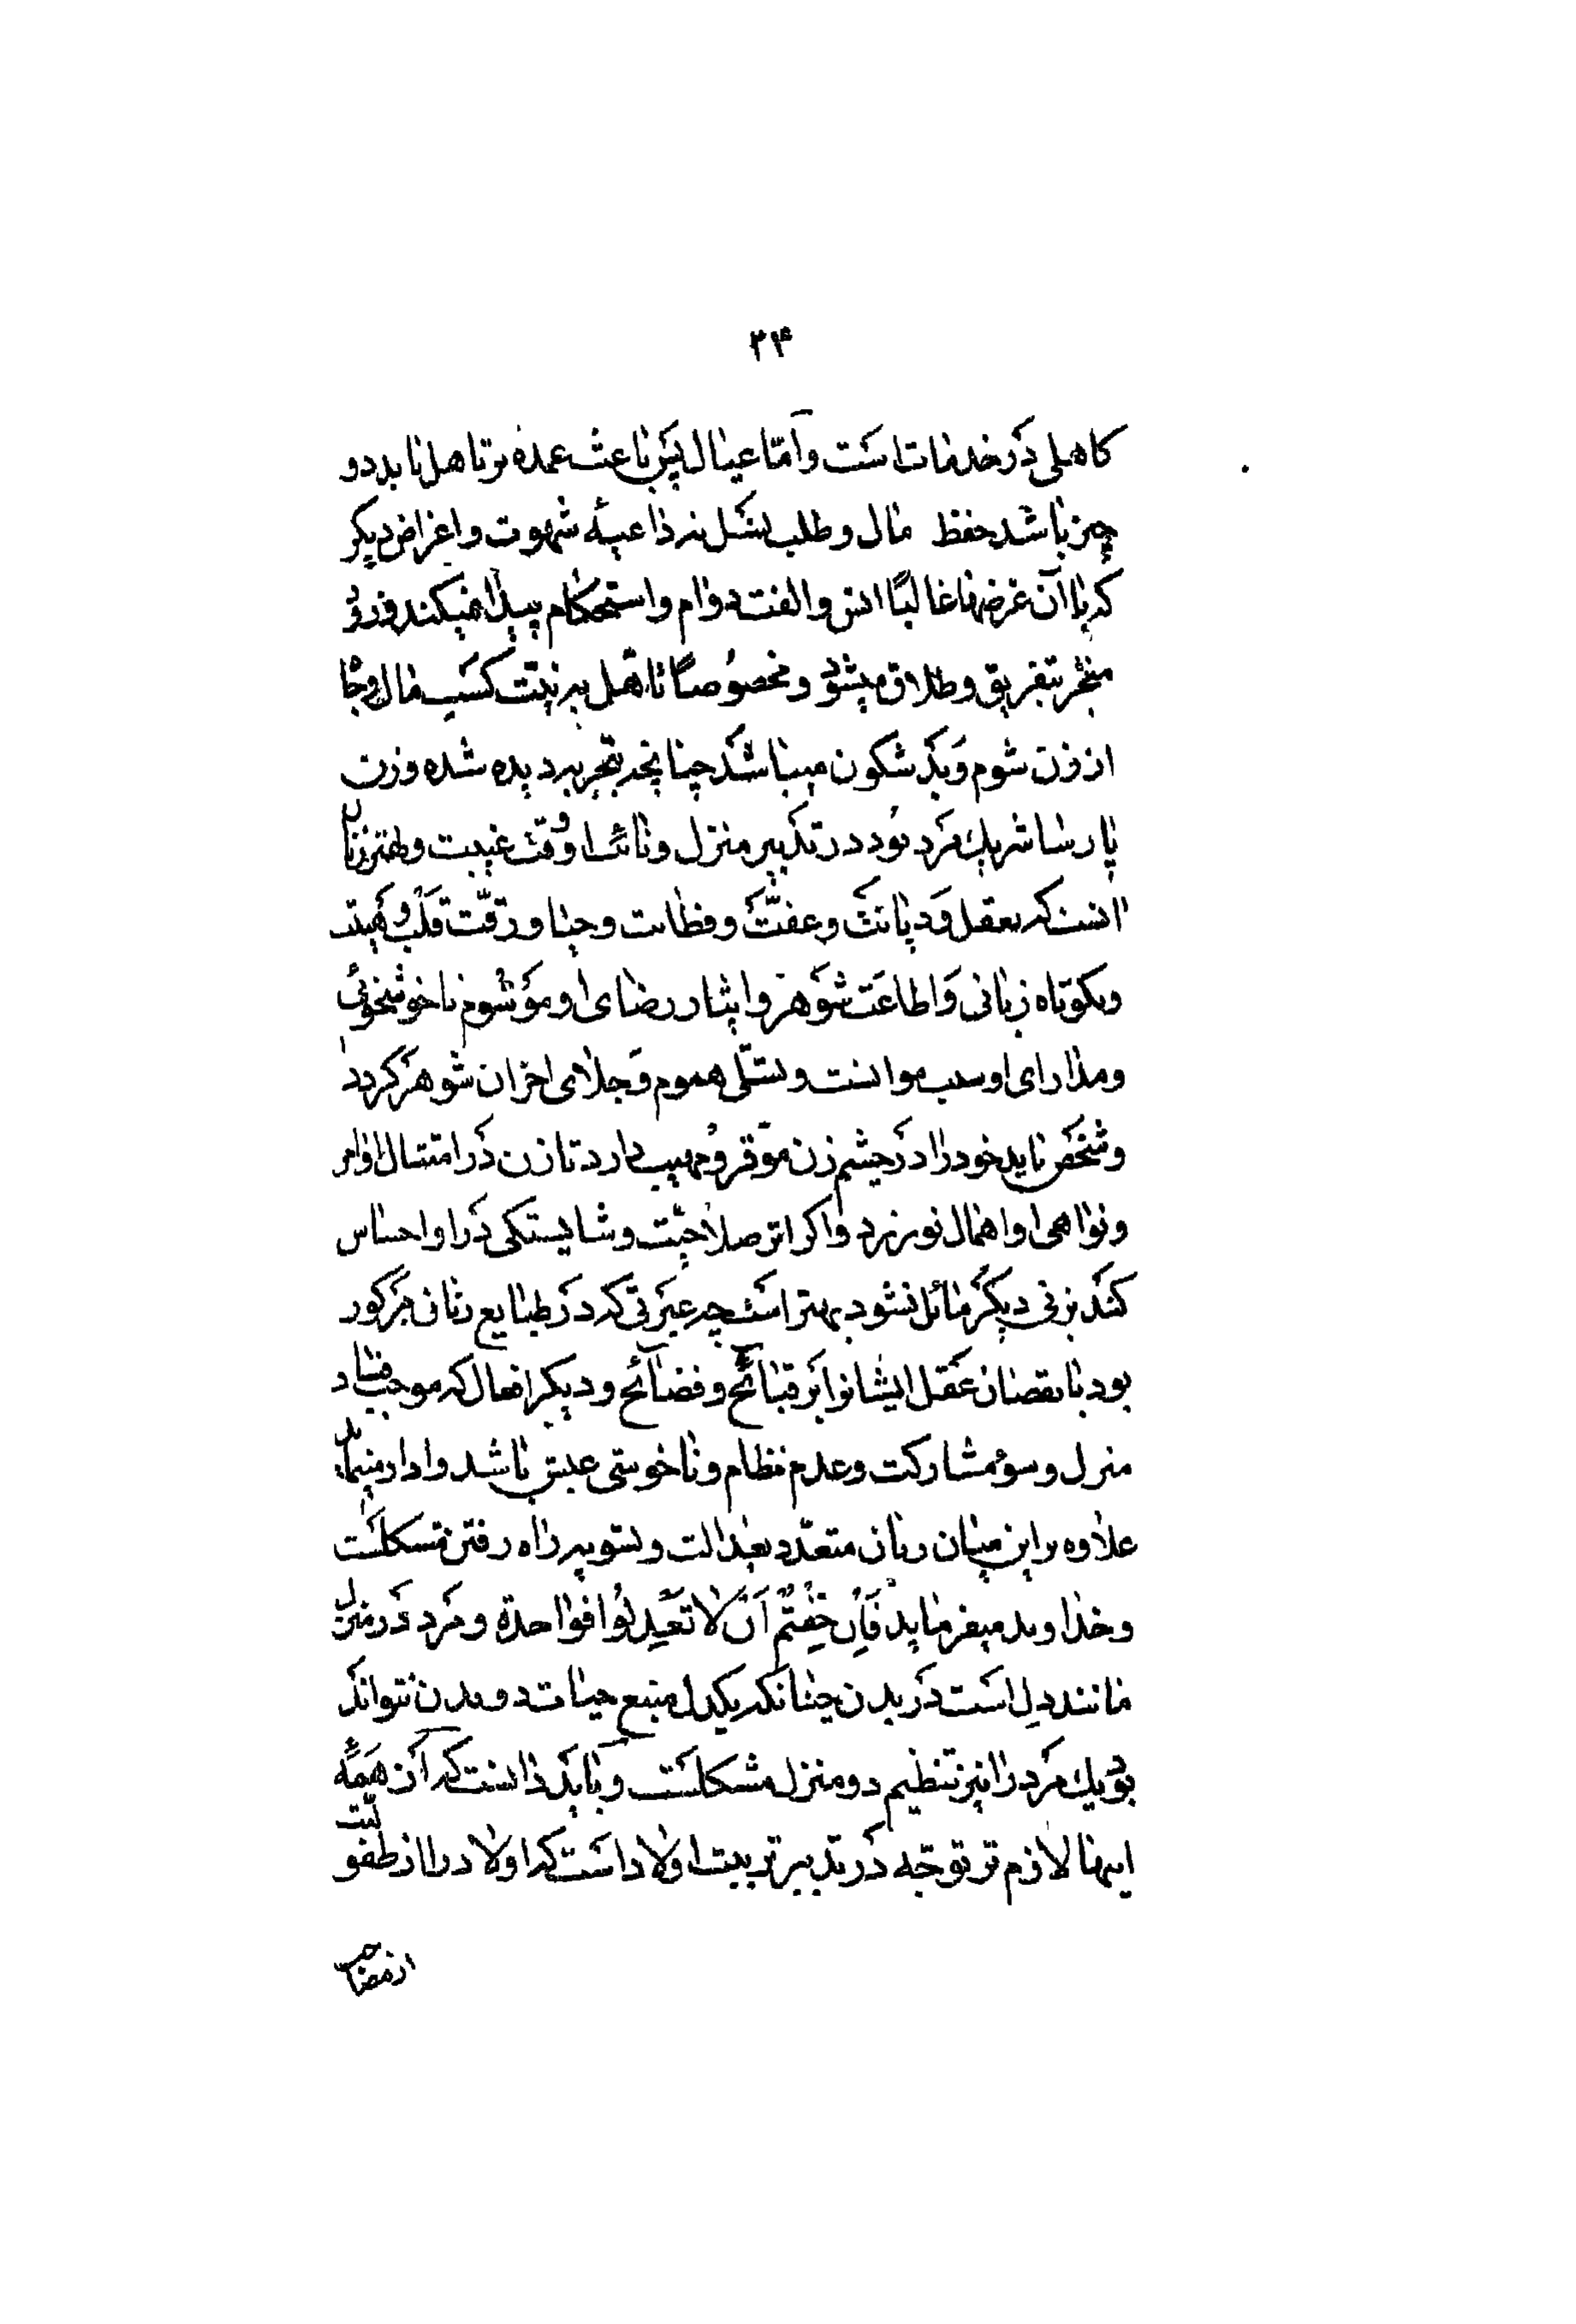 ۳۴
کاهلی در خدمات است و امّا عیال پس باعث عمده بر تاهل باید دو
چیز باشد حفظ مال و طلب نسل نه داعیهٔ شهوت و اغراض دیگر
که با آن غرضها غالباً انس و الفت دوام و استحکام پیدا نمیکند و زود
منجر بتفریق و طلاق میشود و مخصوصاً تاهل به نیّت کسب مال و جاه
از زن شوم و بد شگون میباشد چنانچه بتجربه دیده شده و زن
پارسا شریك مرد بود در تدبیر منزل و نائب او وقت غیبت و بهترین زنان
انست که بعقل و دیانت و عفّت و فطانت و حیا و رقّت قلب و هیئت
و بکوتاه زبانی و اطاعت شوهر و ایثار رضای او موسوم با خوشخوئی
و مدارای او سبب موانست و تسلّی هموم و جلای احزان شوهر گردد
و شخص باید خود را در چشم زن موقر و مهیب دارد تا زن در امتثال اوامر
و نواهی او اهمال نورزد و اگر اثر صلاحیّت و شایستگی در او احساس
کند بزنی دیگر مائل نشود بهتر است چه غیرتی که در طبایع زنان مرکوز
بود با نقصان عقل ایشانرا بر قبائح و فضائح و دیگر افعال که موجب فساد
منزل و سوء مشارکت و عدم نظام و ناخوشی عیش باشد وادار مینماید
علاوه بر این میان زنان متعدّد بعدالت و تسویه راه رفتن مشکلست
و خداوند میفرماید فَاِن خِفتُم اَن لا تَعدِلُوا فواحدة و مرد در منزل
مانند دل است در بدن چنانکه یکدل منبع حیات دو بدن نتواند
بود یك مرد را نیز تنظیم دو منزل مشکلست و باید دانست که از همهٔ
اینها لازم تر توجّه در تدبیر تربیت اولاد است که اولاد را از طفولیّت
از مصاحب